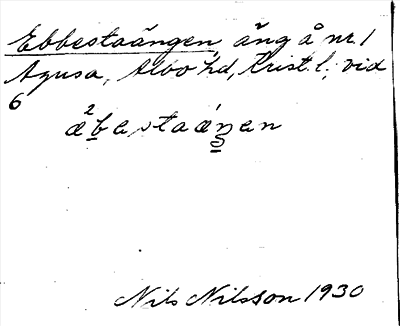 Ebbestaängen, äng å nr. 1
Agusa, Albo hd, Krist. l., vid
6
²
æbestaáŋen
Nils Nilsson 1930